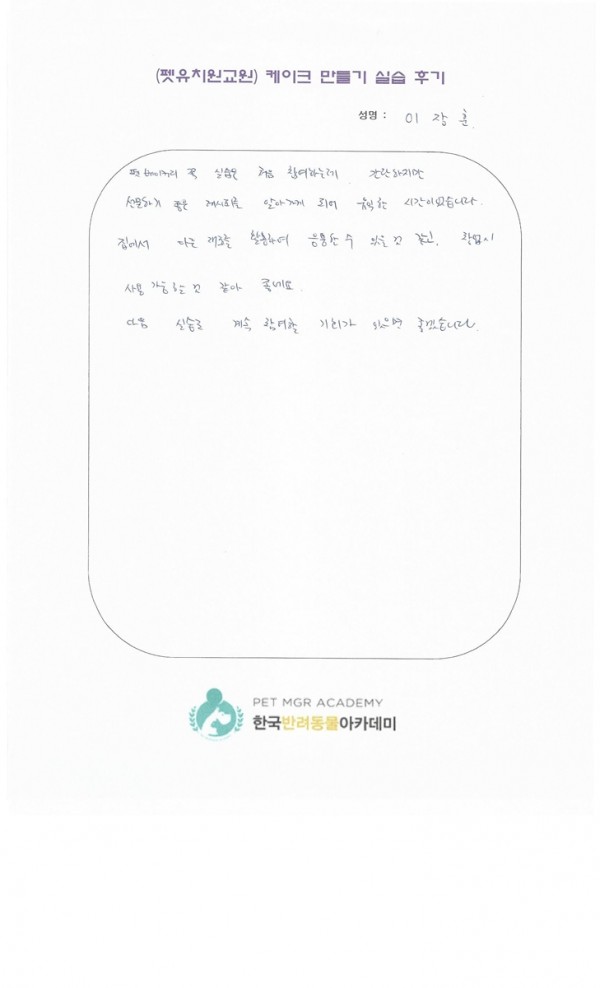 (펫유치원교원) 케이크 만들기 실습 후기
성명 : 이 장 훈
펫 베이커리 쪽 실습은 처음 참여하는데 간단하지만
선물하기 좋은 레시피를 알아가게 되어 유익한 시간이었습니다.
집에서 다른 재료를 활용하여 응용할 수 있을 것 같고, 창업시
사용 가능한 것 같아 좋네요.
다음 실습도 계속 참여할 기회가 있으면 좋겠습니다.
PET MGR ACADEMY
한국반려동물아카데미